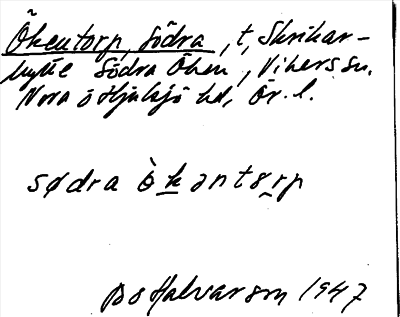 Ökentorp, södra, t, Skrikar-
hytte Södra Öken, Vikers sn.
Nora o Hjulsjö hd, Ör. l.
sødra ò̀kəntɤrp
Bo Halvarson 1947